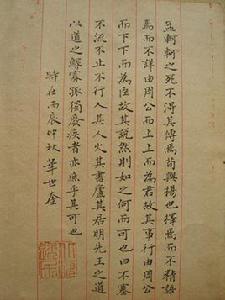 孟軻軻之死不得其傳焉荀與楊也擇焉而不精語
焉而不詳由周公而上上而為君故其事行由周公
而下下而為臣故其説然則如之何而可也曰不塞
不流不止不行人其人火其書廬其居明先王之道
以道之鰥寡孤獨廢疾者亦庶乎其可也
時在丙辰仲秋 華世奎